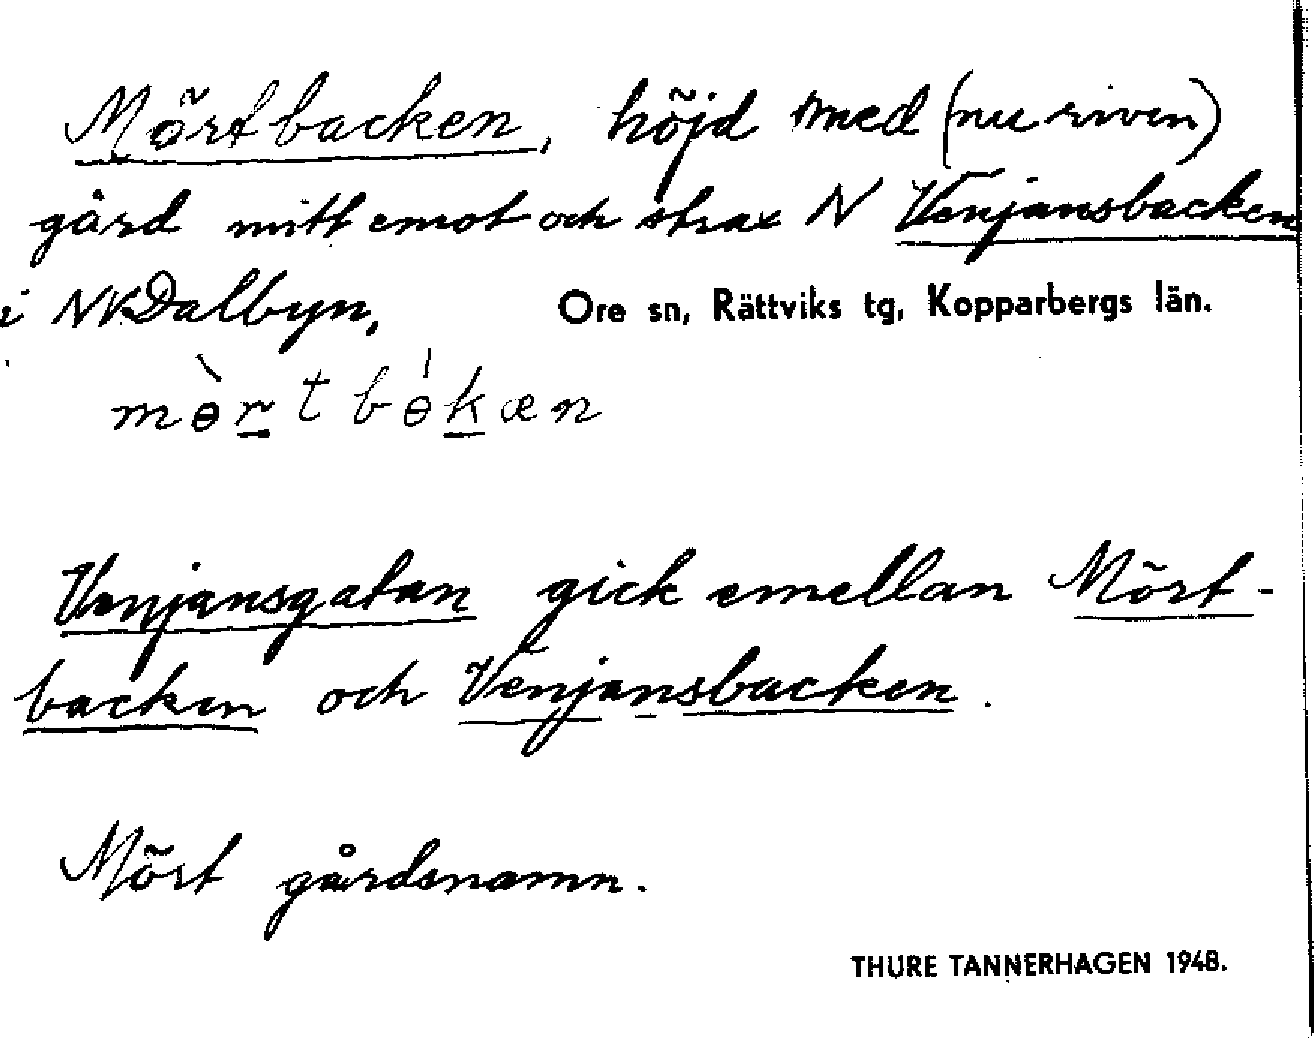 Mörtbacken, höjd med (nu riven)
gård mitt emot och strax N Venjansbacken
i NV Dalbyn, Ore sn, Rättviks tg, Kopparbergs län.
mɵ̀rtbɵ́kæn
Venjansgatan gick emellan Mört-
backen och Venjansbacken.
Mört gårdsnamn.
THURE TANNERHAGEN 1948.